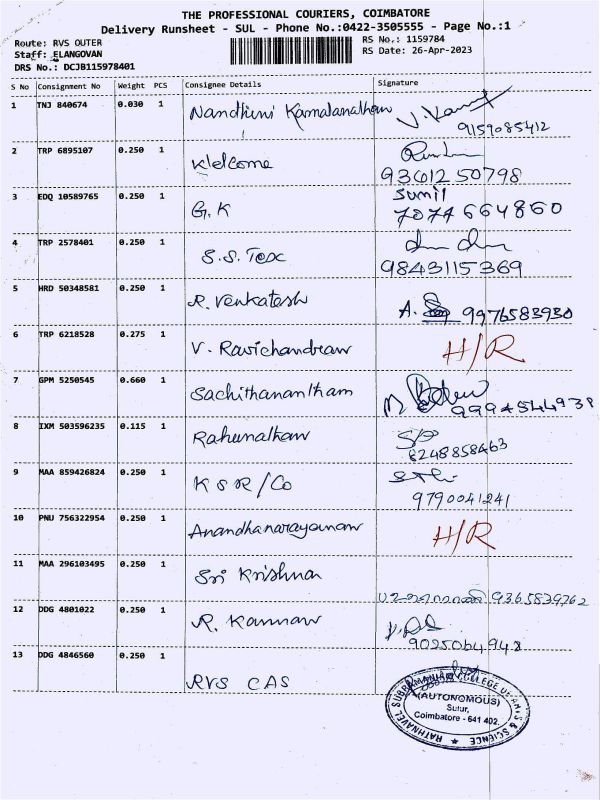 THE PROFESSIONAL COURIERS, COIMBATORE
Delivery Runsheet - SUL - Phone No.:0422-3505555 - Page No.:1
Route: RVS OUTER
RS No.: 1159784
Staff: ELANGOVAN
RS Date: 26-Apr-2023
DRS No.: DCJB115978401
S No Consignment No Weight PCS Consignee Details Signature
1 TNJ 840674 0.030 1 Nandhini Kamalanathan
9159085412
2 TRP 6895107 0.250 1 Welcome
93612 50798
3 EDQ 10589765 0.250 1 G.K Sunil
7074 664860
4 TRP 2578401 0.250 1 S.S. Tex
9843115369
5 HRD 50348581 0.250 1 R. Venkatesh A. 9976583930
6 TRP 6218528 0.275 1 V. Ravichandran H/R
7 GPM 5250545 0.660 1 Sachithanantham
9994544938
8 IXM 503596235 0.115 1 Rahunathan
8248858463
9 MAA 859426824 0.250 1 KSR/Co
9790041241
10 PNU 756322954 0.250 1 Anandhanarayanan H/R
11 MAA 296103495 0.250 1 Sri Krishna
9365839762
12 DDG 4801022 0.250 1 R. Kannan
9025064948
13 DDG 4846560 0.250 1 RVS CAS
RATHNAVEL SUBRAMANIAM COLLEGE OF ARTS & SCIENCE
(AUTONOMOUS)
Sulur,
Coimbatore - 641 402.